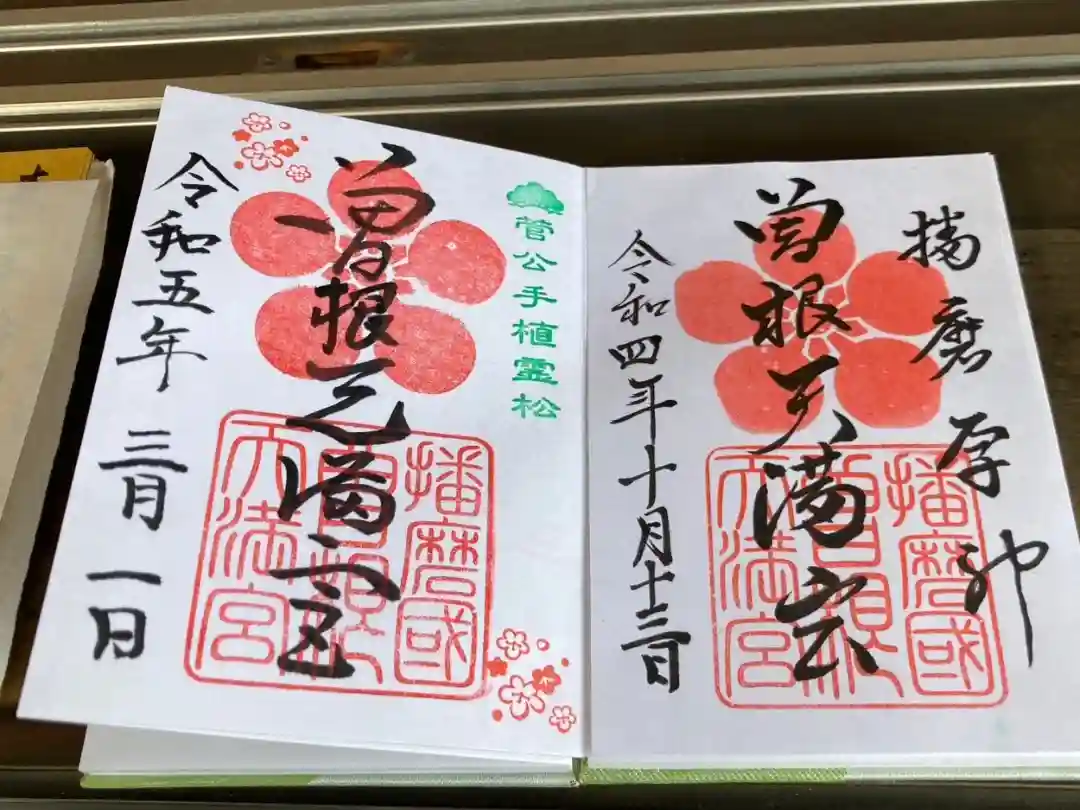 播磨
曽根天満宮
令和四年十月十三日
播磨國
曽根
天満宮
菅公手植霊松
曽根天満宮
令和五年 三月 一日
播磨國
曽根
天満宮